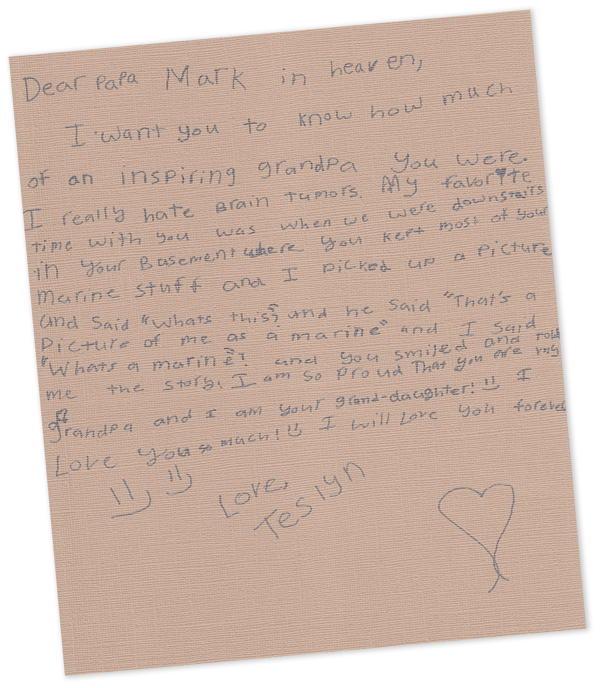 Dear Papa Mark in heaven,
I want you to know how much
of an inspiring grandpa you were.
I really hate Brain tumors. My favorite
time with you was when we were downstairs
in your Basement where you kept most of your
Marine stuff and I picked up a picture
and said "Whats this?" and he said "That's a
picture of me as a marine" and I said
"Whats a marine"? and you smiled and told
me the story. I am so proud That you are my
grandpa and I am your grand-daughter! I
Love you so much! I will Love you forever
Love,
Teslyn